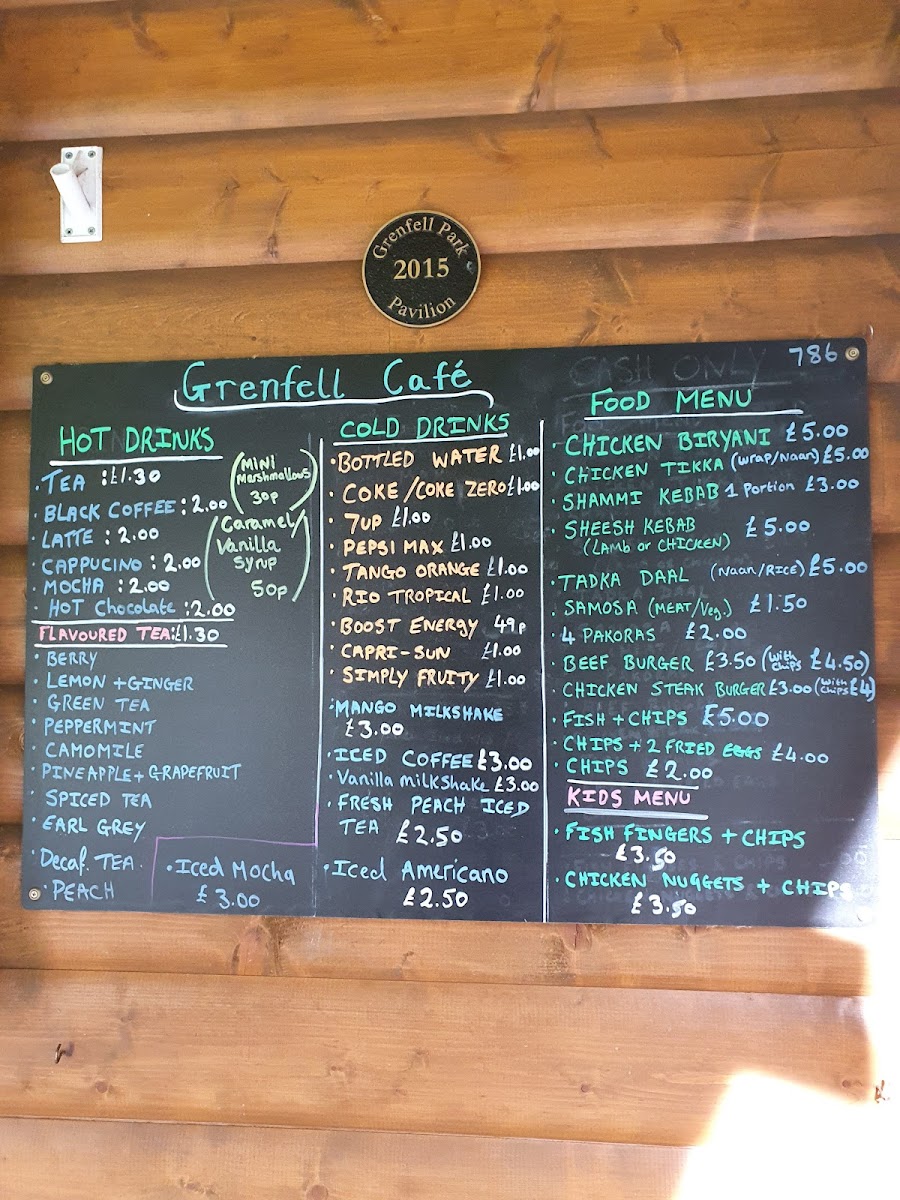 Grenfell Park
2015
Pavilion
CASH ONLY
786
Grenfell Café
HOT DRINKS
• TEA : £1.30
• BLACK COFFEE : 2.00
• LATTE : 2.00
• CAPPUCINO : 2.00
• MOCHA : 2.00
• HOT Chocolate : 2.00
(MINI
Marshmallows
30p)
(Caramel/
Vanilla
Syrup
50p)
FLAVOURED TEA: £1.30
• BERRY
• LEMON + GINGER
• GREEN TEA
• PEPPERMINT
• CAMOMILE
• PINEAPPLE + GRAPEFRUIT
• SPICED TEA
• EARL GREY
• Decaf. TEA.
• PEACH
• Iced Mocha
£3.00
COLD DRINKS
• BOTTLED WATER £1.00
• COKE/COKE ZERO £1.00
• 7UP £1.00
• PEPSI MAX £1.00
• TANGO ORANGE £1.00
• RIO TROPICAL £1.00
• BOOST ENERGY 49p
• CAPRI-SUN £1.00
• SIMPLY FRUITY £1.00
• MANGO MILKSHAKE
£3.00
• ICED COFFEE £3.00
• Vanilla milkshake £3.00
• FRESH PEACH ICED
TEA £2.50
• Iced Americano
£2.50
FOOD MENU
• CHICKEN BIRYANI £5.00
• CHICKEN TIKKA (Wrap/Naan) £5.00
• SHAMMI KEBAB 1 Portion £3.00
• SHEESH KEBAB £5.00
(LAMB or CHICKEN)
• TADKA DAAL (Naan/RICE) £5.00
• SAMOSA (MEAT/Veg.) £1.50
• 4 PAKORAS £2.00
• BEEF BURGER £3.50 (With chips £4.50)
• CHICKEN STEAK BURGER £3.00 (With chips £4)
• FISH + CHIPS £5.00
• CHIPS + 2 FRIED EGGS £4.00
• CHIPS £2.00
KIDS MENU
• FISH FINGERS + CHIPS
£3.50
• CHICKEN NUGGETS + CHIPS
£3.50